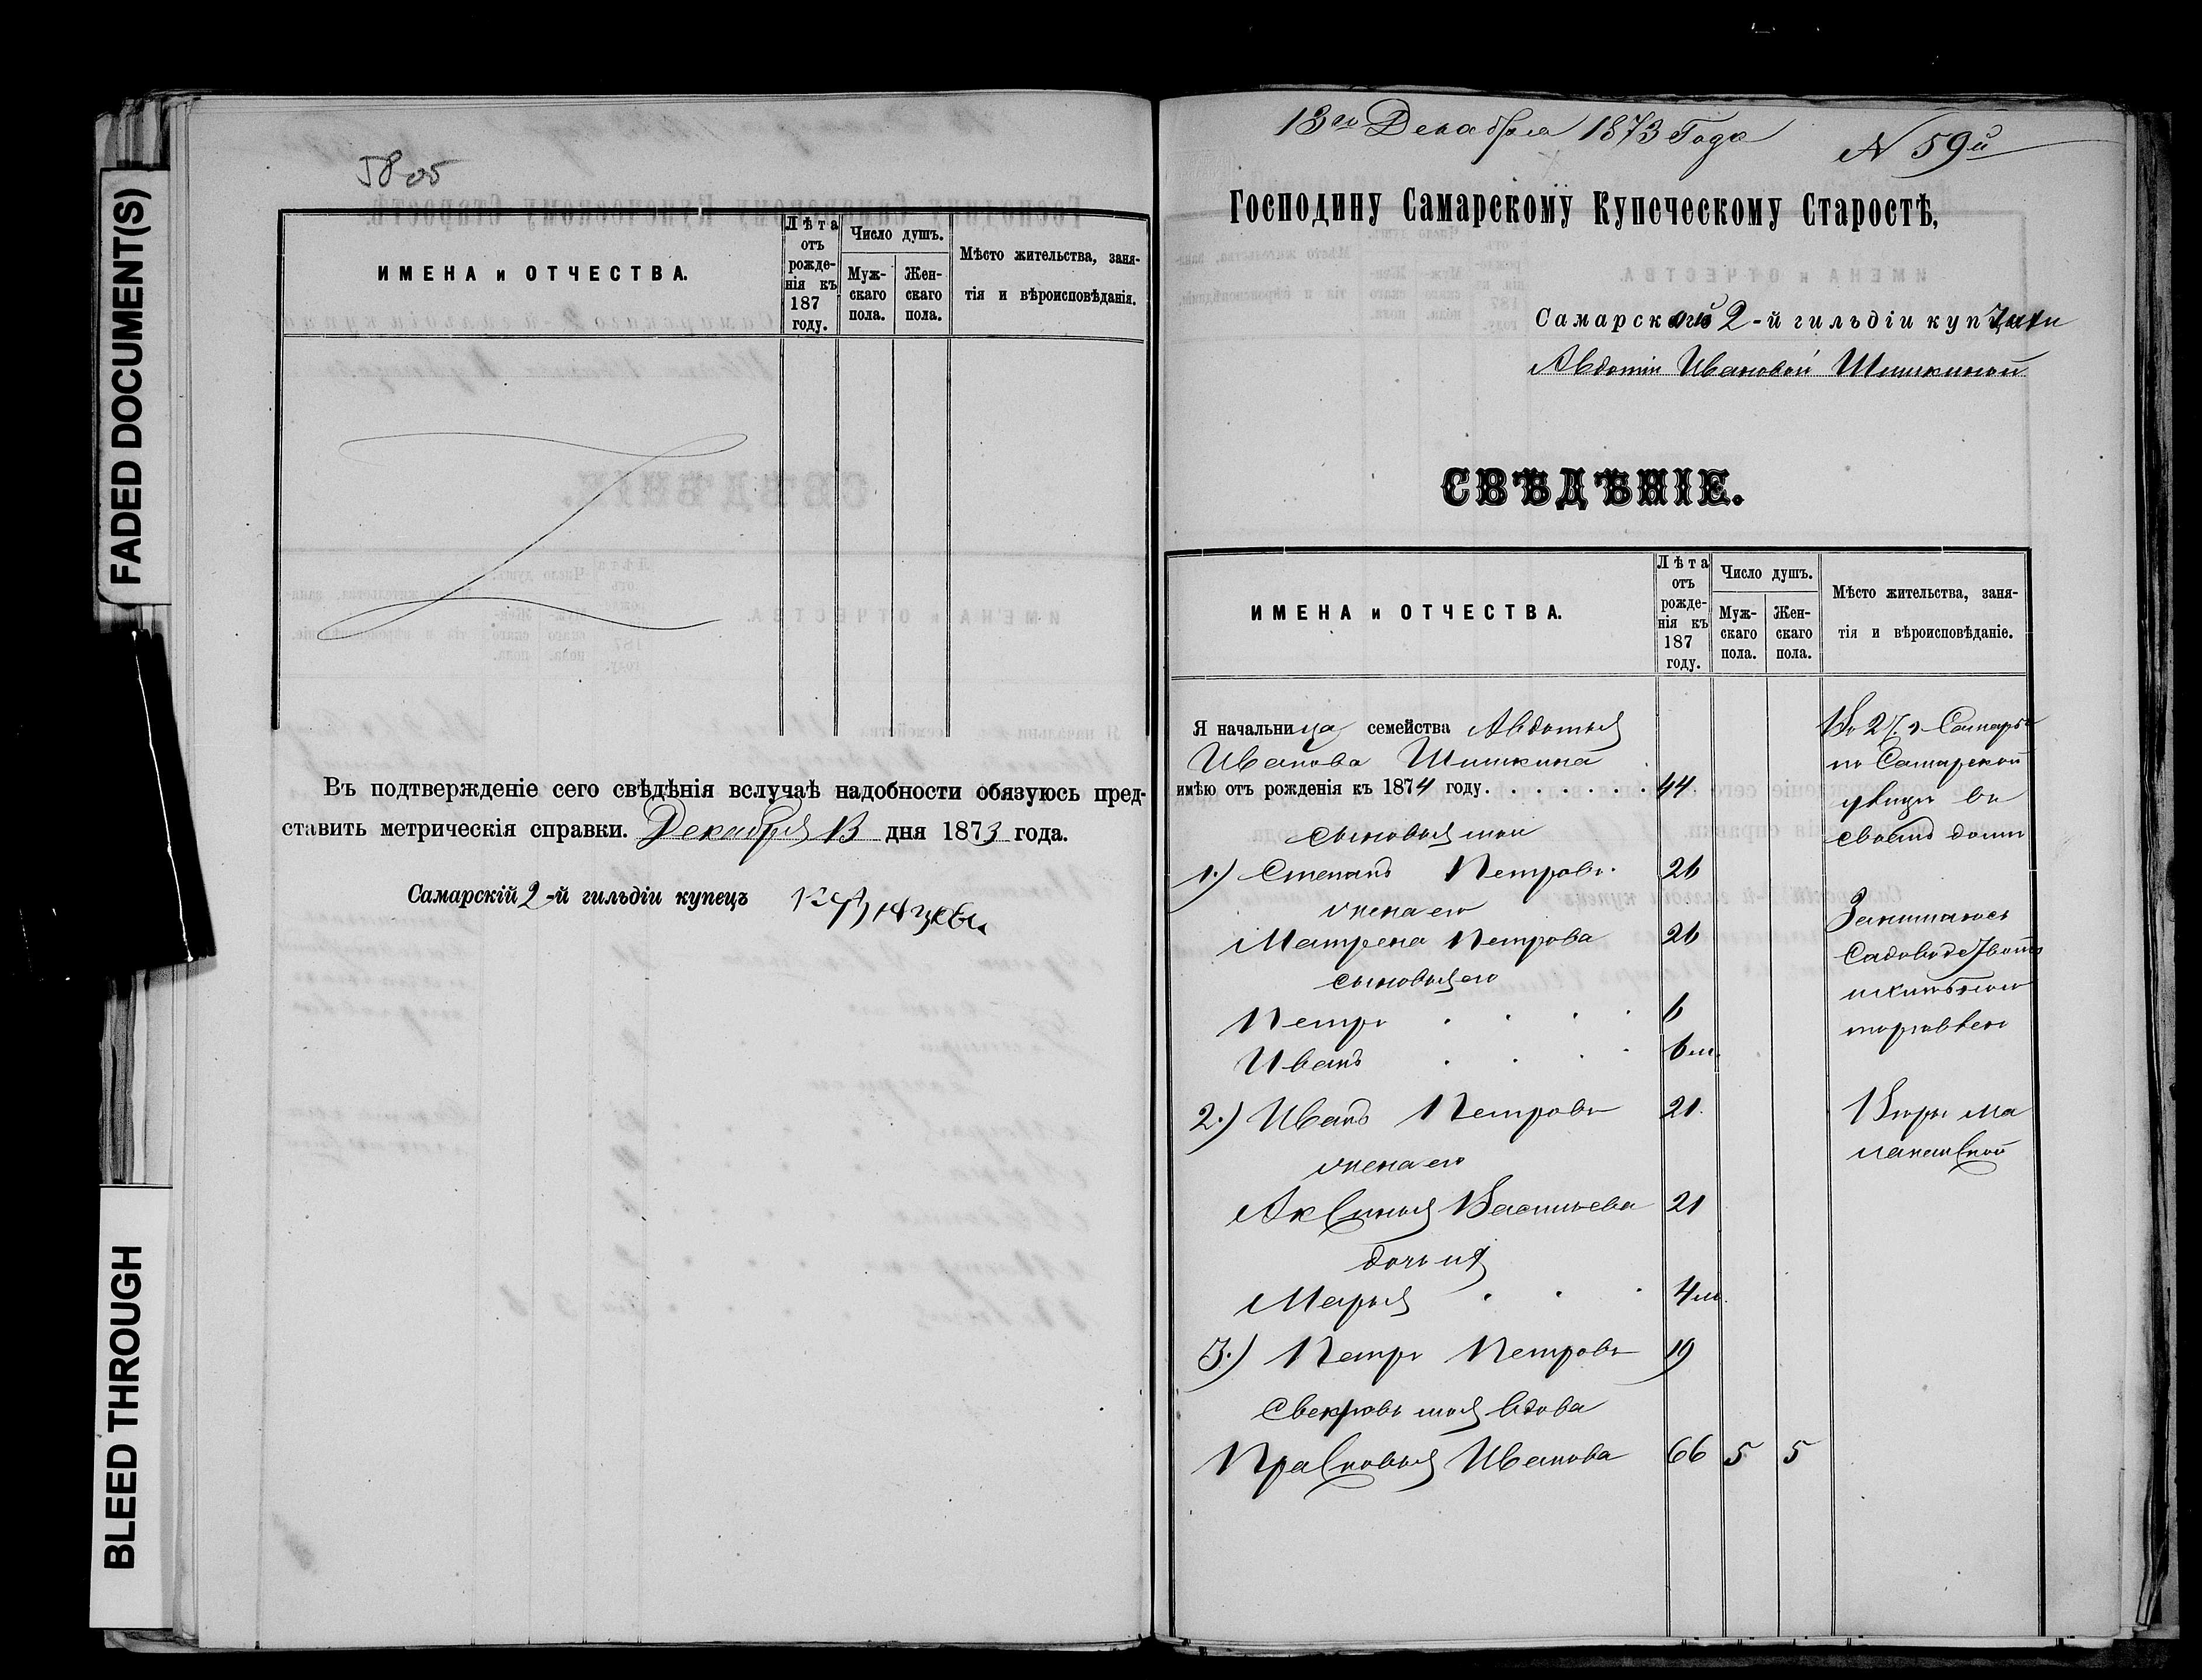 FADED DOCUMENT(S)
BLEED THROUGH
58 об
ИМЕНА и ОТЧЕСТВА.
Лѣта отъ рожденія къ 187 году.
Число душъ.
Мужскаго пола.
Женскаго пола.
Мѣсто жительства, занятія и вѣроисповѣданія.
Въ подтвержденіе сего свѣдѣнія вслучаѣ надобности обязуюсь пред-
ставить метрическія справки. Декабря 13 дня 1873 года.
Самарскій 2-й гильдіи купецъ
13го Декабря 1873 Года
N 59й
Господину Самарскому Купеческому Старостѣ,
Самарской 2-й гильдіи купчихи
Авдотіи Ивановой Шишкиной
СВѢДѢНІЕ.
ИМЕНА и ОТЧЕСТВА.
Лѣта отъ рожденія къ 187 году.
Число душъ.
Мужскаго пола.
Женскаго пола.
Мѣсто жительства, занятія и вѣроисповѣданіе.
Я начальница семейства Авдотья
Иванова Шишкина
имѣю отъ рожденія къ 1874 году. . . . . . . . 44
сыновья мои
1.) Степанъ Петровъ. 26
жена его
Матрена Петрова 26
сыновья его
Петръ 6
Иванъ 6 м.
2.) Иванъ Петровъ 21.
жена его
Аксинья Васильева 21
дочь ихъ
Марья 4 м.
3.) Петръ Петровъ 19
свекровь моя вдова
Прасковья Иванова 66 5 5
Въ 2 ч. г. Самары
по Самарской
улицѣ въ
своемъ домѣ
Занимаюсь
Садоводствомъ
и хлѣбною
торговлею
Вѣры Мо
локанской